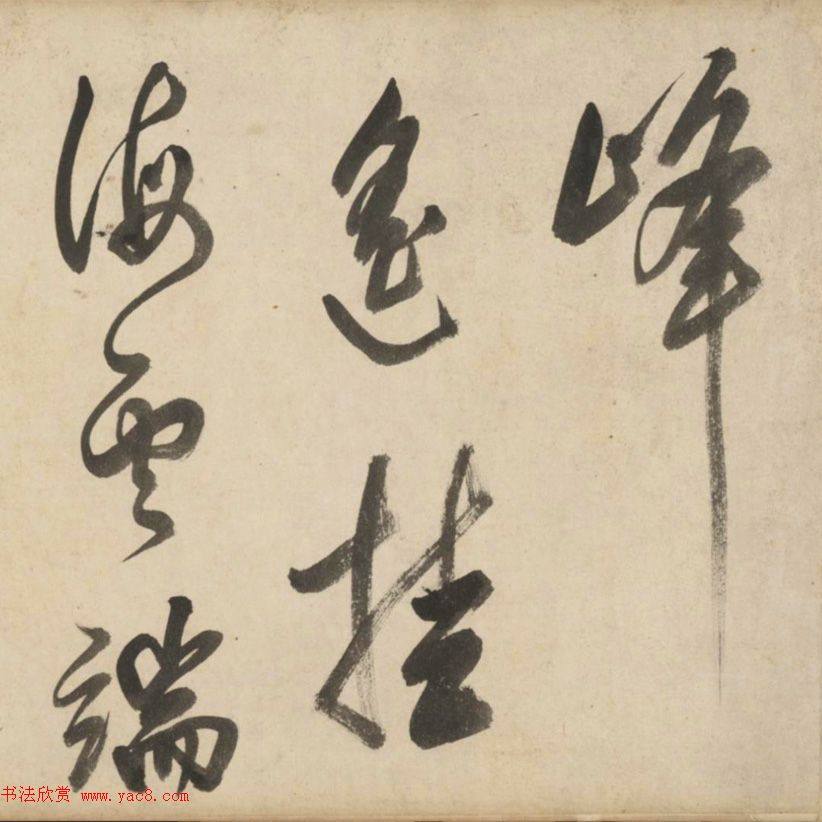 峰
遥挂
海云端
书法欣赏 www.yac8.com